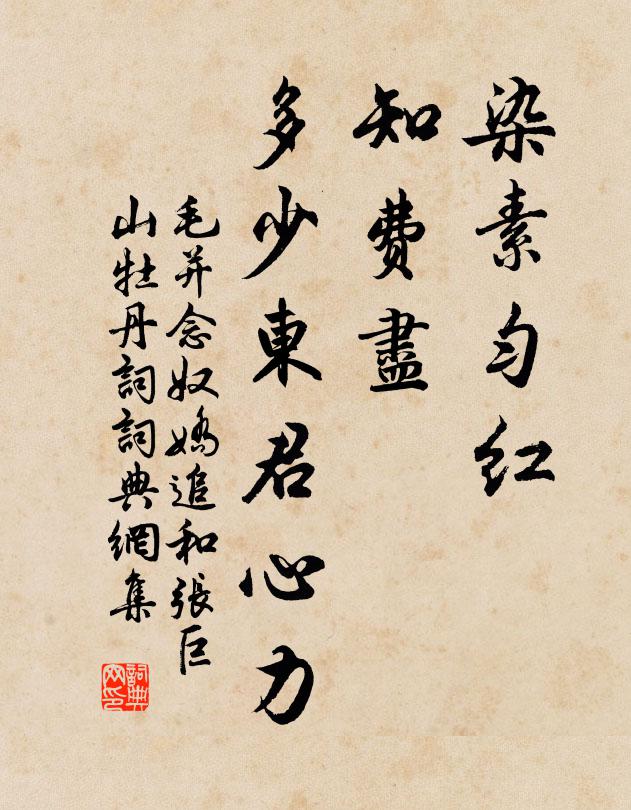 染素勻红
知費盡
多少東君心力
毛并念奴嬌追和張巨
山牡丹詞詞典網集
詞典
网印